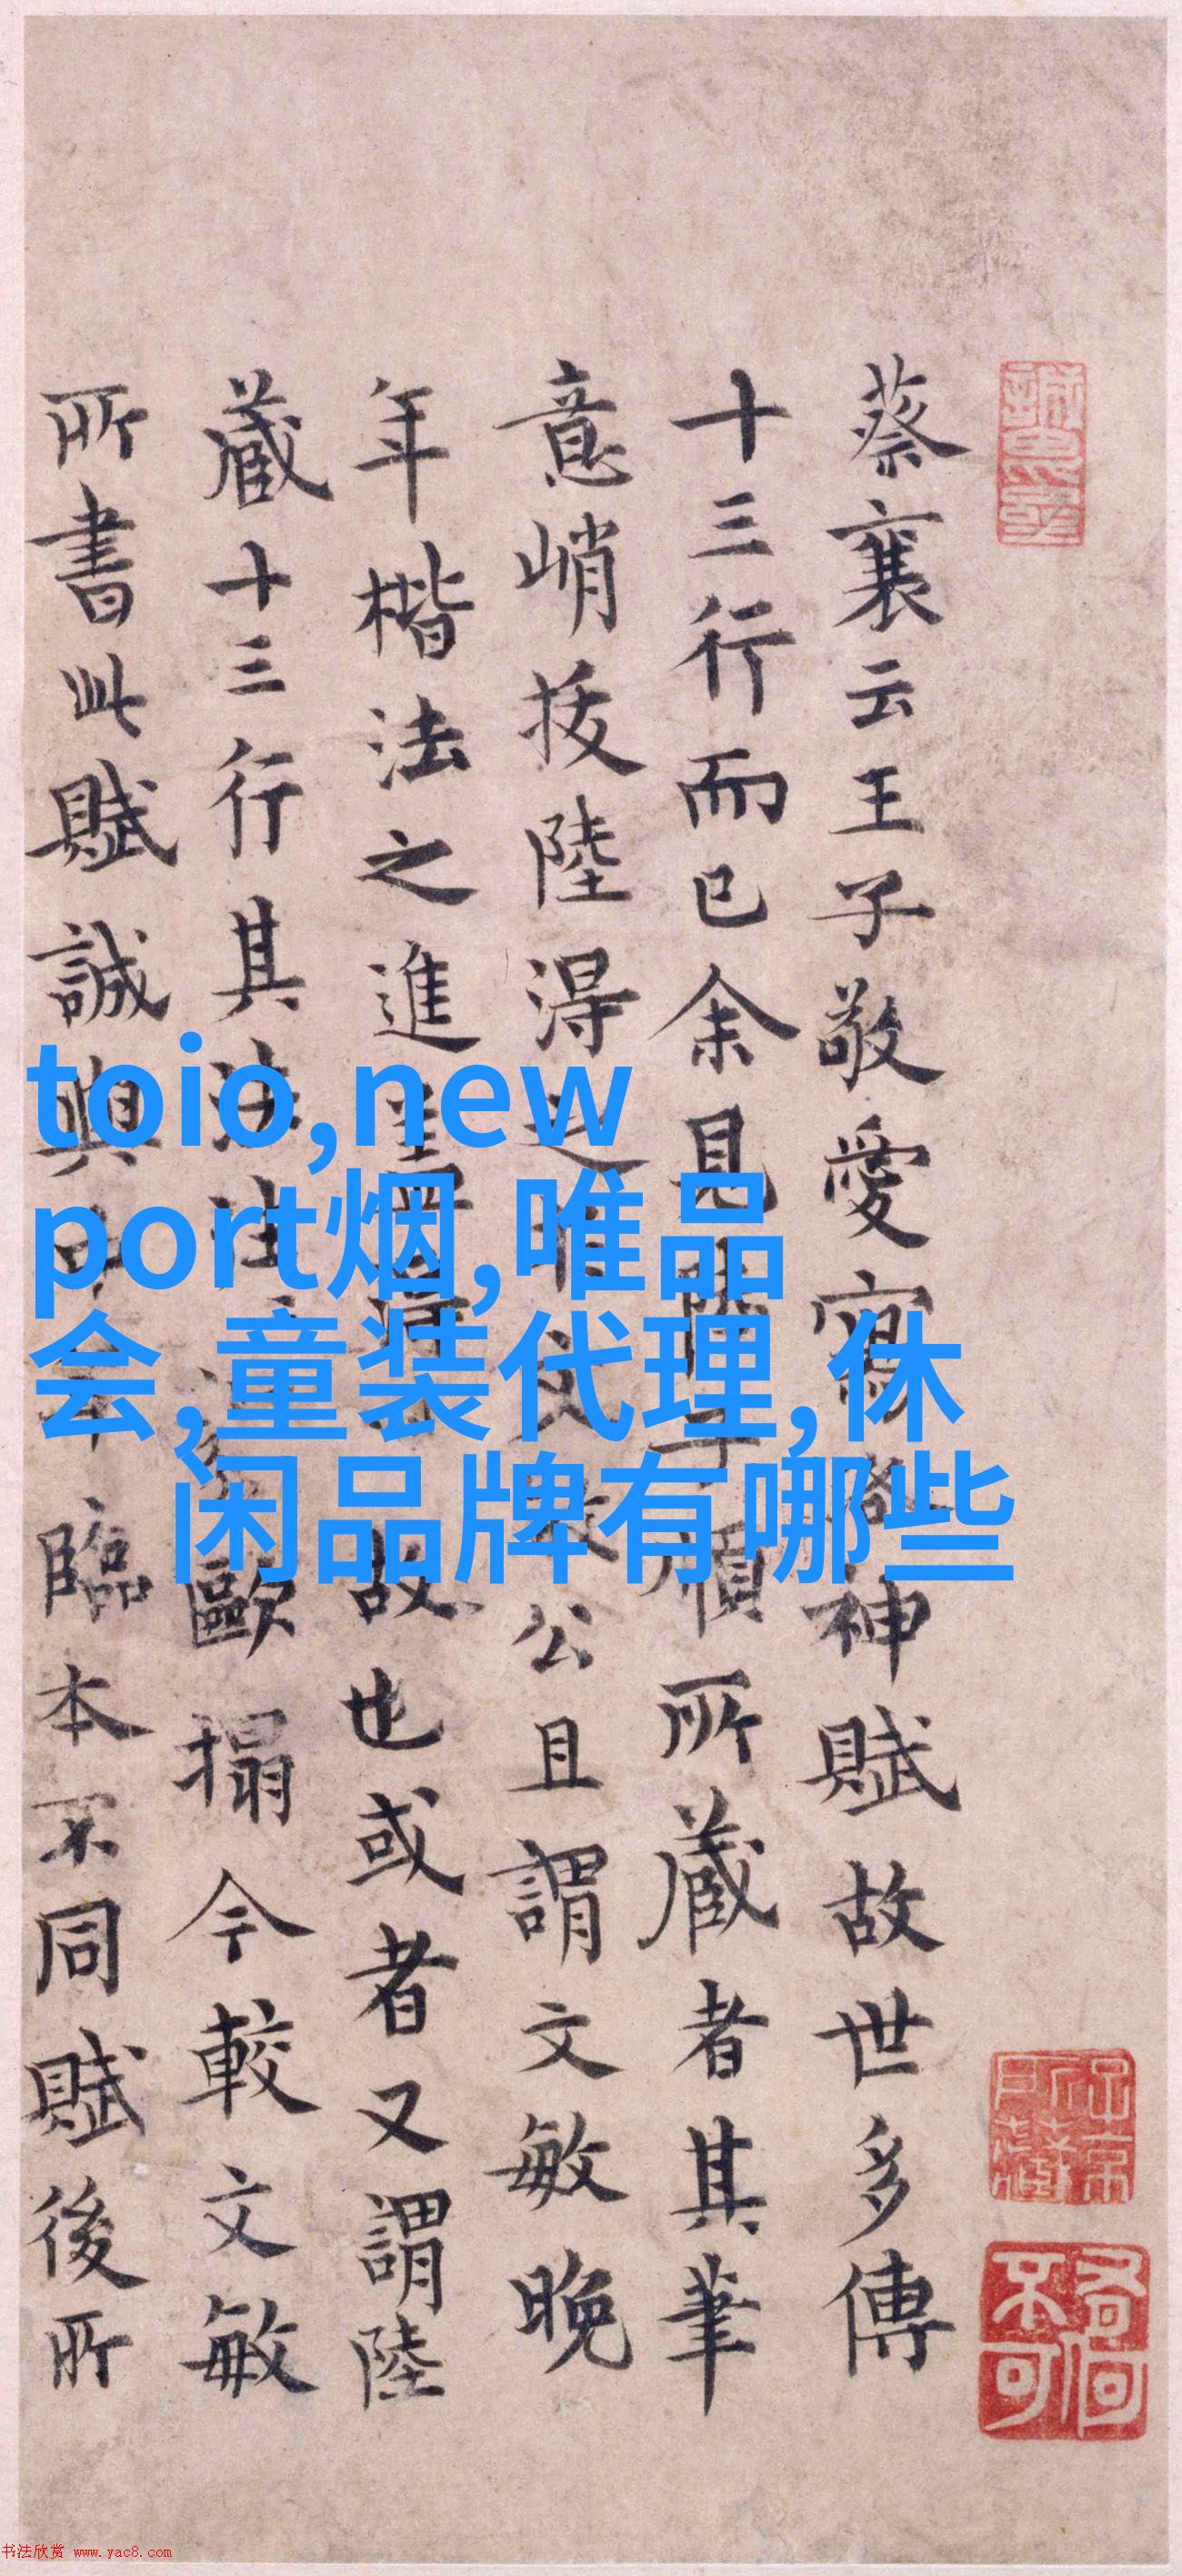 蔡襄云王子敬愛寫洛神賦故世多傳
十三行而已余見陸子順所藏者其筆
意峭拔陸得之文公且謂文敏晚
年楷法之進蓋得故也或者又謂陸
藏十三行其法歐搨今較文敏
所書此賦誠與臨本不同賦後所
toio,new
port烟,唯品
会,童装代理,休
闲品牌有哪些
书法欣赏 www.yac8.com